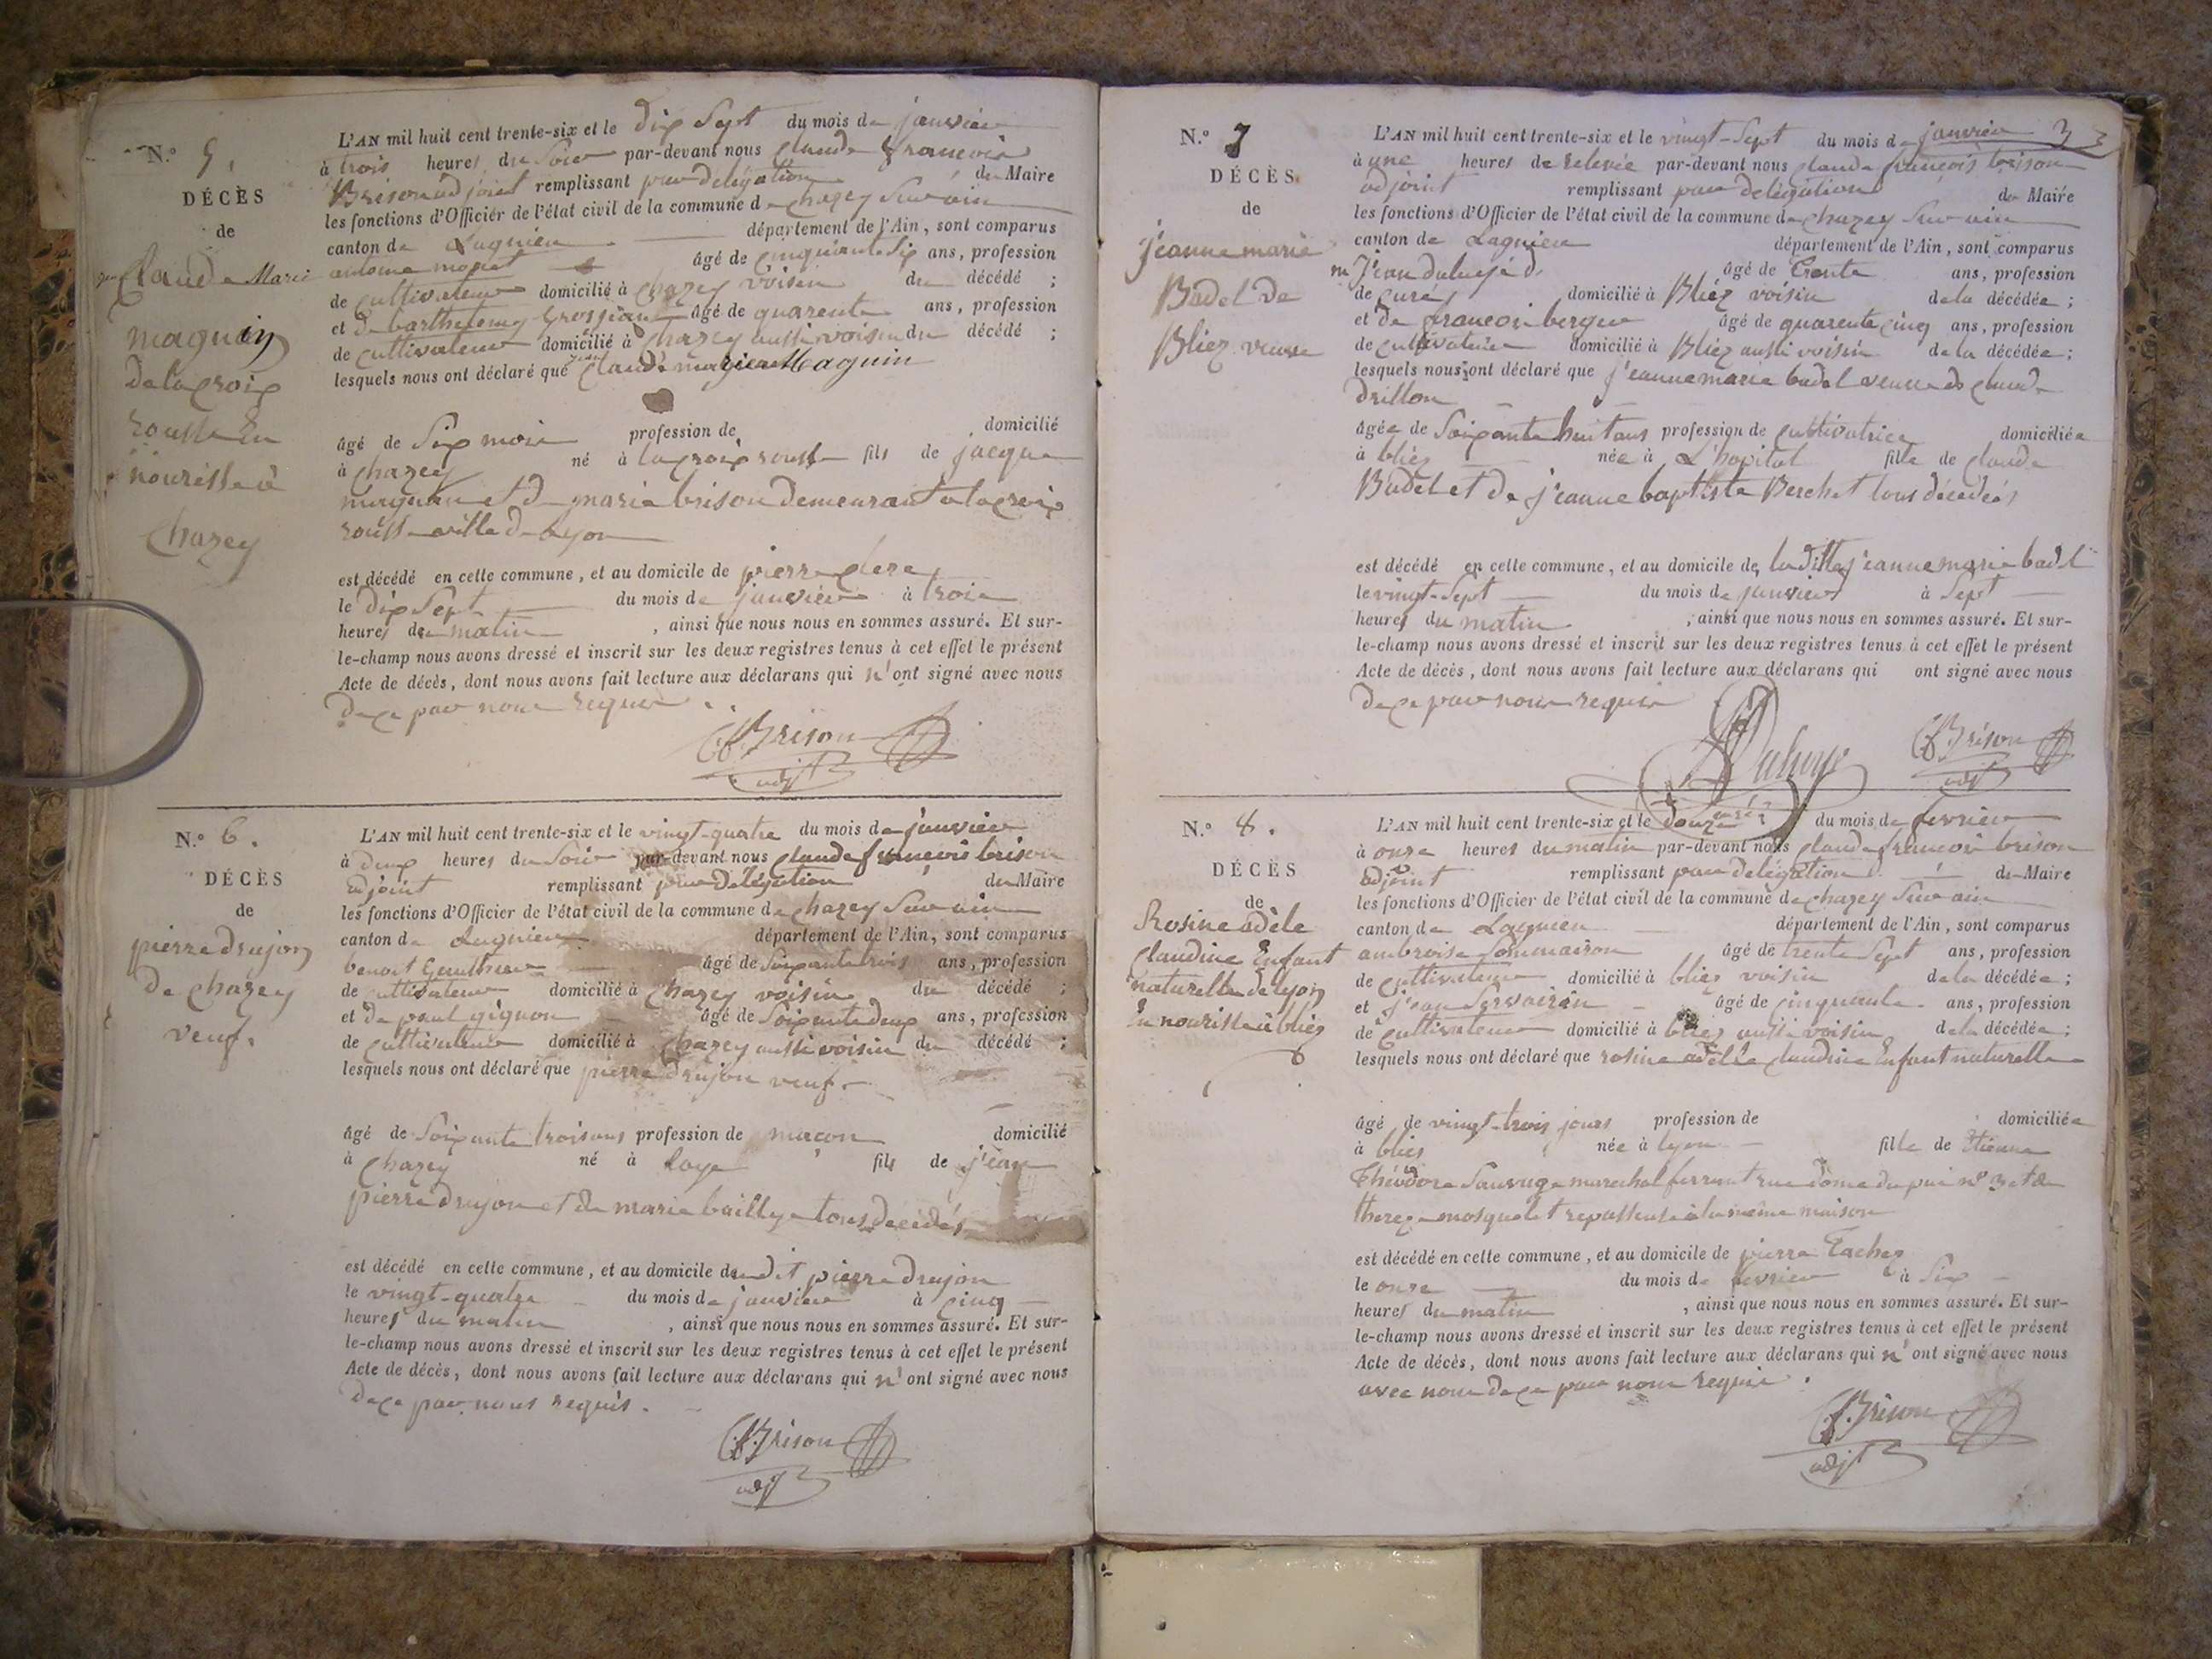 N.° 5.
DÉCÈS
de
Claude Marie
maguin
de la croix
rousse En
nourisse à
Chazey
L'AN mil huit cent trente-six et le dix Sept du mois de janvier
à trois heures du Soir par-devant nous Claude françois
Brison adjoint remplissant par délégation du Maire
les fonctions d'Officier de l'état civil de la commune de chazey Sur ain
canton de Lagnieu département de l'Ain, sont comparus
antoine âgé de cinquante Six ans, profession
de cultivateur domicilié à Chazey voisin du décédé ;
et de barthelemy Grosjean âgé de quarente ans, profession
de cultivateur domicilié à Chazey aussi voisin du décédé ;
lesquels nous ont déclaré que jean Claude marie Maguin
âgé de Six mois profession de domicilié
à chazey né à la croix rousse fils de jacque
maguin et de marie brison demeurant a la croix
rousse ville de Lyon
est décédé en cette commune, et au domicile de pierre clere
le dix Sept du mois de janvier à trois
heures du matin, ainsi que nous nous en sommes assuré. Et sur-
le-champ nous avons dressé et inscrit sur les deux registres tenus à cet effet le présent
Acte de décès, dont nous avons fait lecture aux déclarans qui n'ont signé avec nous
de ce par nous requis.
C.f. Brison
adjt
N.° 6.
DÉCÈS
de
pierre drujon
de chazey
veuf.
L'AN mil huit cent trente-six et le vingt-quatre du mois de janvier
à deux heures du Soir par-devant nous claude françois brison
adjoint remplissant par délégation du Maire
les fonctions d'Officier de l'état civil de la commune de chazey Sur ain
canton de Lagnieu département de l'Ain, sont comparus
benoit âgé de Soixante trois ans, profession
de cultivateur domicilié à Chazey voisin du décédé ;
et de paul gignon âgé de Soixante deux ans, profession
de cultivateur domicilié à Chazey aussi voisin du décédé ;
lesquels nous ont déclaré que pierre drujon veuf
âgé de Soixante trois ans profession de maçon domicilié
à Chazey né à Loye fils de j'ean
pierre drujon et de marie baillye tous decedés
est décédé en cette commune, et au domicile du dit pierre drujon
le vingt-quatre du mois de janvier à cinq
heures du matin, ainsi que nous nous en sommes assuré. Et sur-
le-champ nous avons dressé et inscrit sur les deux registres tenus à cet effet le présent
Acte de décès, dont nous avons fait lecture aux déclarans qui n'ont signé avec nous
de ce par nous requis.
C.f. Brison
adjt
3
N.° 7
DÉCÈS
de
jeanne marie
Badel de
Bliez veuve
L'AN mil huit cent trente-six et le vingt-Sept du mois de janvier
à une heures de relevée par-devant nous claude françois brison
adjoint remplissant par délégation du Maire
les fonctions d'Officier de l'état civil de la commune de chazey Sur ain
canton de Lagnieu département de l'Ain, sont comparus
mr Jean âgé de trente ans, profession
de curé domicilié à Bliez voisin de la décédée ;
et de françois berger âgé de quarente cinq ans, profession
de cultivateur domicilié à Bliez aussi voisin de la décédée ;
lesquels nous ont déclaré que j'eanne marie badel veuve de claude
drillon
âgée de Soixante huit ans profession de cultivatrice domiciliée
à bliez née à L'hopital fille de claude
Badel et de j'eanne baptiste Berchet tous décédés
est décédé en cette commune, et au domicile de la ditte j'eanne marie badel
le vingt-Sept du mois de janvier à Sept
heures du matin, ainsi que nous nous en sommes assuré. Et sur-
le-champ nous avons dressé et inscrit sur les deux registres tenus à cet effet le présent
Acte de décès, dont nous avons fait lecture aux déclarans qui ont signé avec nous
de ce par nous requis
C.f. Brison
adjt
curé
N.° 8.
DÉCÈS
de
Rosine adèle
claudine Enfant
naturelle de lyon
En nourisse à bliez
L'AN mil huit cent trente-six et le douze du mois de fevrier
à onze heures du matin par-devant nous claude françois brison
adjoint remplissant par délégation du Maire
les fonctions d'Officier de l'état civil de la commune de chazey Sur ain
canton de Lagnieu département de l'Ain, sont comparus
ambroise Sommairon âgé de trente Sept ans, profession
de cultivateur domicilié à bliez voisin de la décédée ;
et j'ean âgé de cinquante ans, profession
de cultivateur domicilié à bliez aussi voisin de la décédée ;
lesquels nous ont déclaré que rosine adèlle claudine Enfant naturelle
âgé de vingt-trois jours profession de domiciliée
à blies née à lyon fille de Etienne
Théodore Sauvage marechal ferrant rue n° 3 et de
thereze mosquelet repasseuse à la même maison
est décédé en cette commune, et au domicile de pierre Tachez
le onze du mois de fevrier à Six
heures du matin, ainsi que nous nous en sommes assuré. Et sur-
le-champ nous avons dressé et inscrit sur les deux registres tenus à cet effet le présent
Acte de décès, dont nous avons fait lecture aux déclarans qui n'ont signé avec nous
avec nous de ce par nous requis.
C.f. Brison
adjt